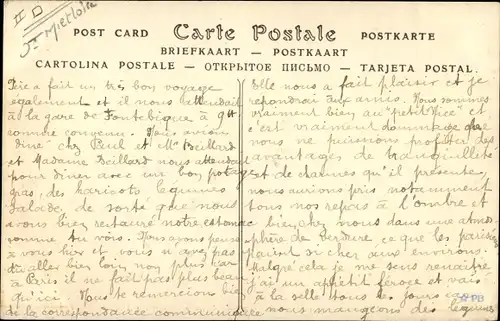 II D
St Mieloir
POST CARD Carte Postale POSTKARTE
BRIEFKAART — POSTKAART
CARTOLINA POSTALE — ОТКРЫТОЕ ПИСЬМО — TARJETA POSTAL
Père a fait un très bon voyage
également et il nous attendait
à la gare de
comme convenu. Nous avions
diné chez Paul et Mr Beillard
et Madame Beillard nous attendait
pour diner avec un bon potage
gras, des haricots legumes
salade, de sorte que nous
avons bien restauré notre estomac
comme tu vois. Nous avons pensé
à vous hier et vous n'avez pas
dû aller bien loin non plus car
à Paris il ne fait pas plus beau
qu'ici. Nous te remercions bien
de la correspondance communiquée
Elle nous a fait plaisir et je
répondrai aux amis. Nous sommes
vraiment bien au "petit Nice" et
c'est vraiment dommage que
nous ne puissions profiter des
avantages de tranquillité
et de charmes qu'il présente,
nous aurions pris notamment
tous nos repas à l'ombre et
bien chez nous dans une atmos
phère de verdure ce que les parisiens
paient si cher aux environs.
Malgré cela je me sens renaître
j'ai un appétit féroce et vais
à la selle tous les jours
nous mangeons des legumes
PB